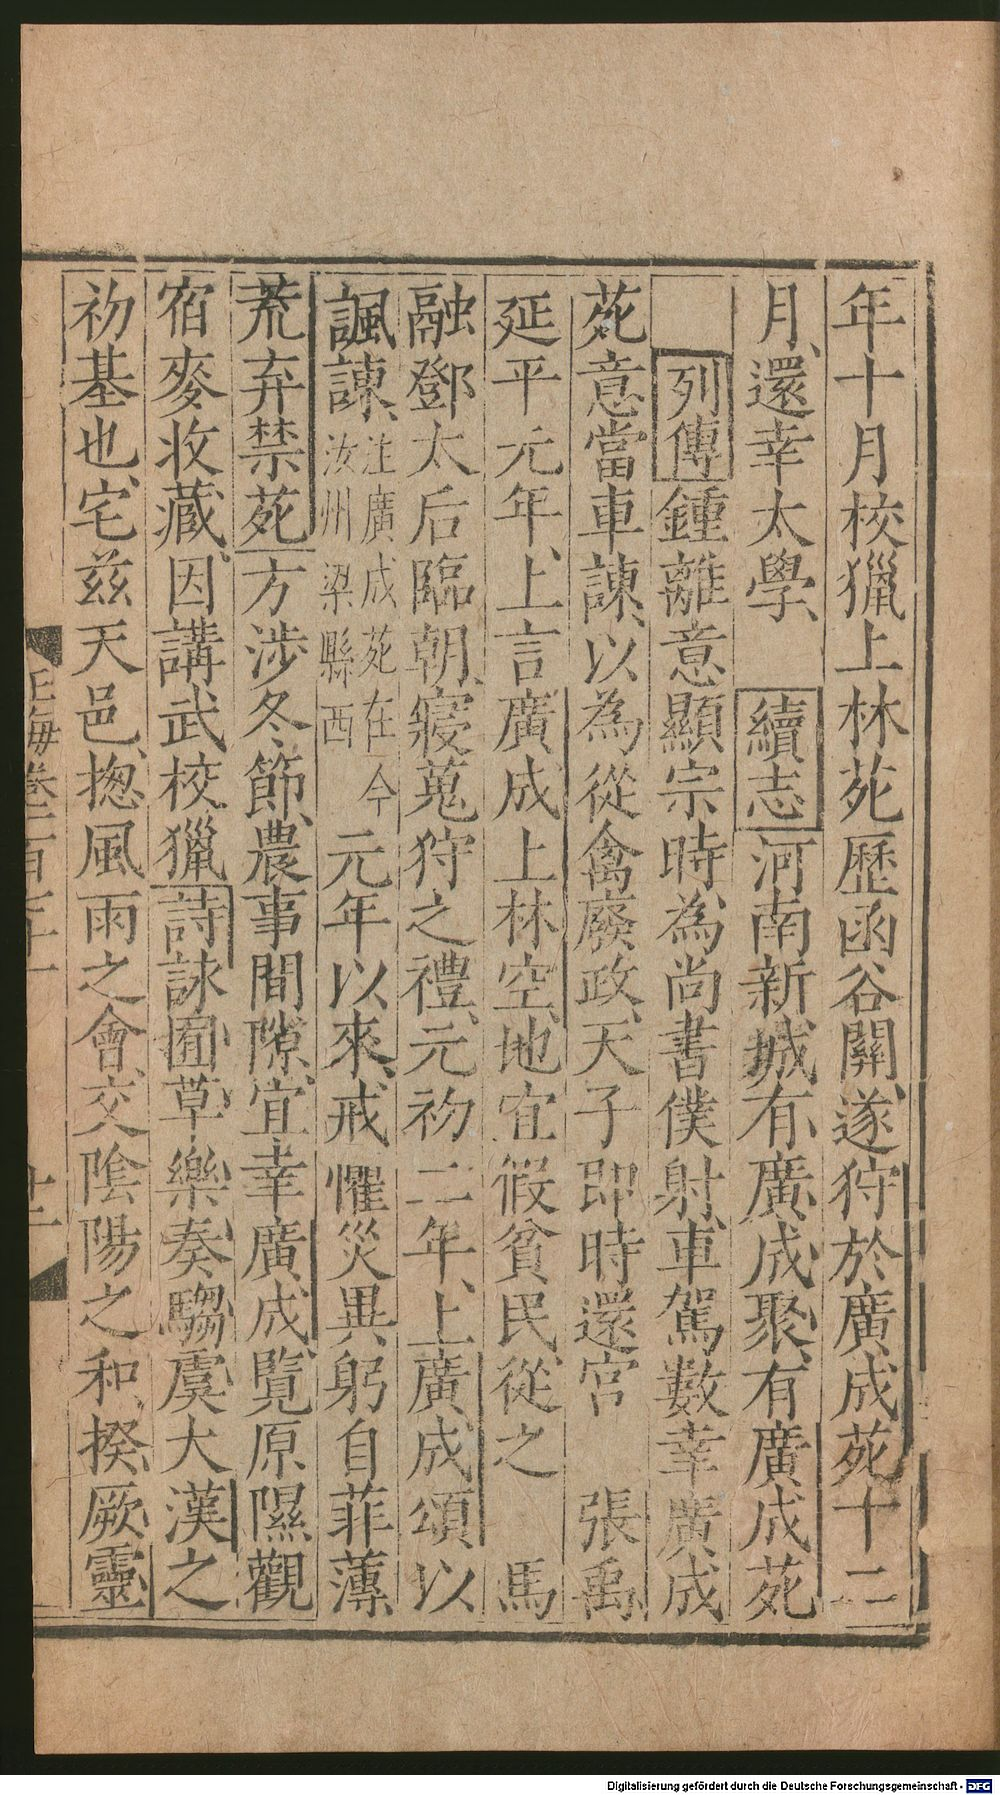 年十月校獵上林苑歷函谷關遂狩於廣成苑十二
月還幸太學 續志河南新城有廣成聚有廣成苑
列傳鍾離意顯宗時為尚書僕射車駕數幸廣成
苑意當車諫以為從禽廢政天子即時還宮 張禹
延平元年上言廣成上林空地宜假貧民從之 馬
融鄧太后臨朝寢蒐狩之禮元初二年上廣成頌以
諷諫注廣成苑在今汝州梁縣西元年以來戒懼災異躬自菲薄
荒弃禁苑方涉冬節農事間隙宜幸廣成覽原隰觀
宿麥收藏因講武校獵詩詠囿草樂奏騶虞大漢之
初基也宅兹天邑揔風雨之會交陰陽之和揆厥靈
玉海卷二百七十一
十二
Digitalisierung gefördert durch die Deutsche Forschungsgemeinschaft - DFG